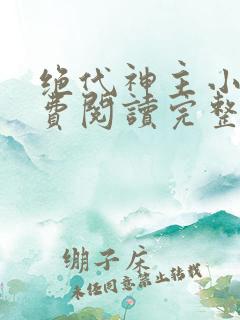 绝代神主小
費閱讀完整
绷子床
未经同意禁止转载